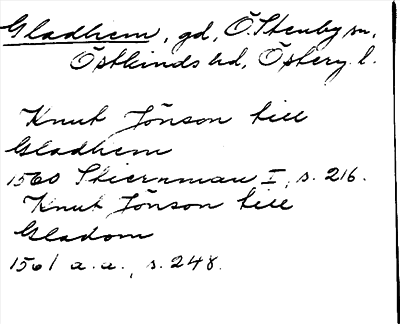 Gladhem, gd, Ö. Stenby sn,
Östkinds hd, Österg. l.
Knut Jönson till
Gladhem
1560 Stiernman I, s. 216.
Knut Jönson till
Gladom
1561 a.a., s. 248.